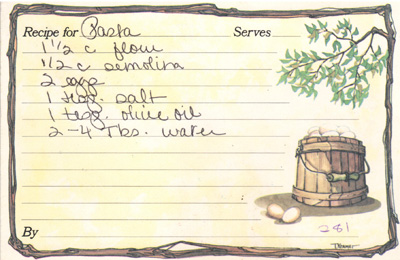 Recipe for Pasta Serves
1 1/2 c flour
1/2 c semolina
2 eggs
1 tsp. salt
1 tsp. olive oil
2-4 Tbs. water
By
281